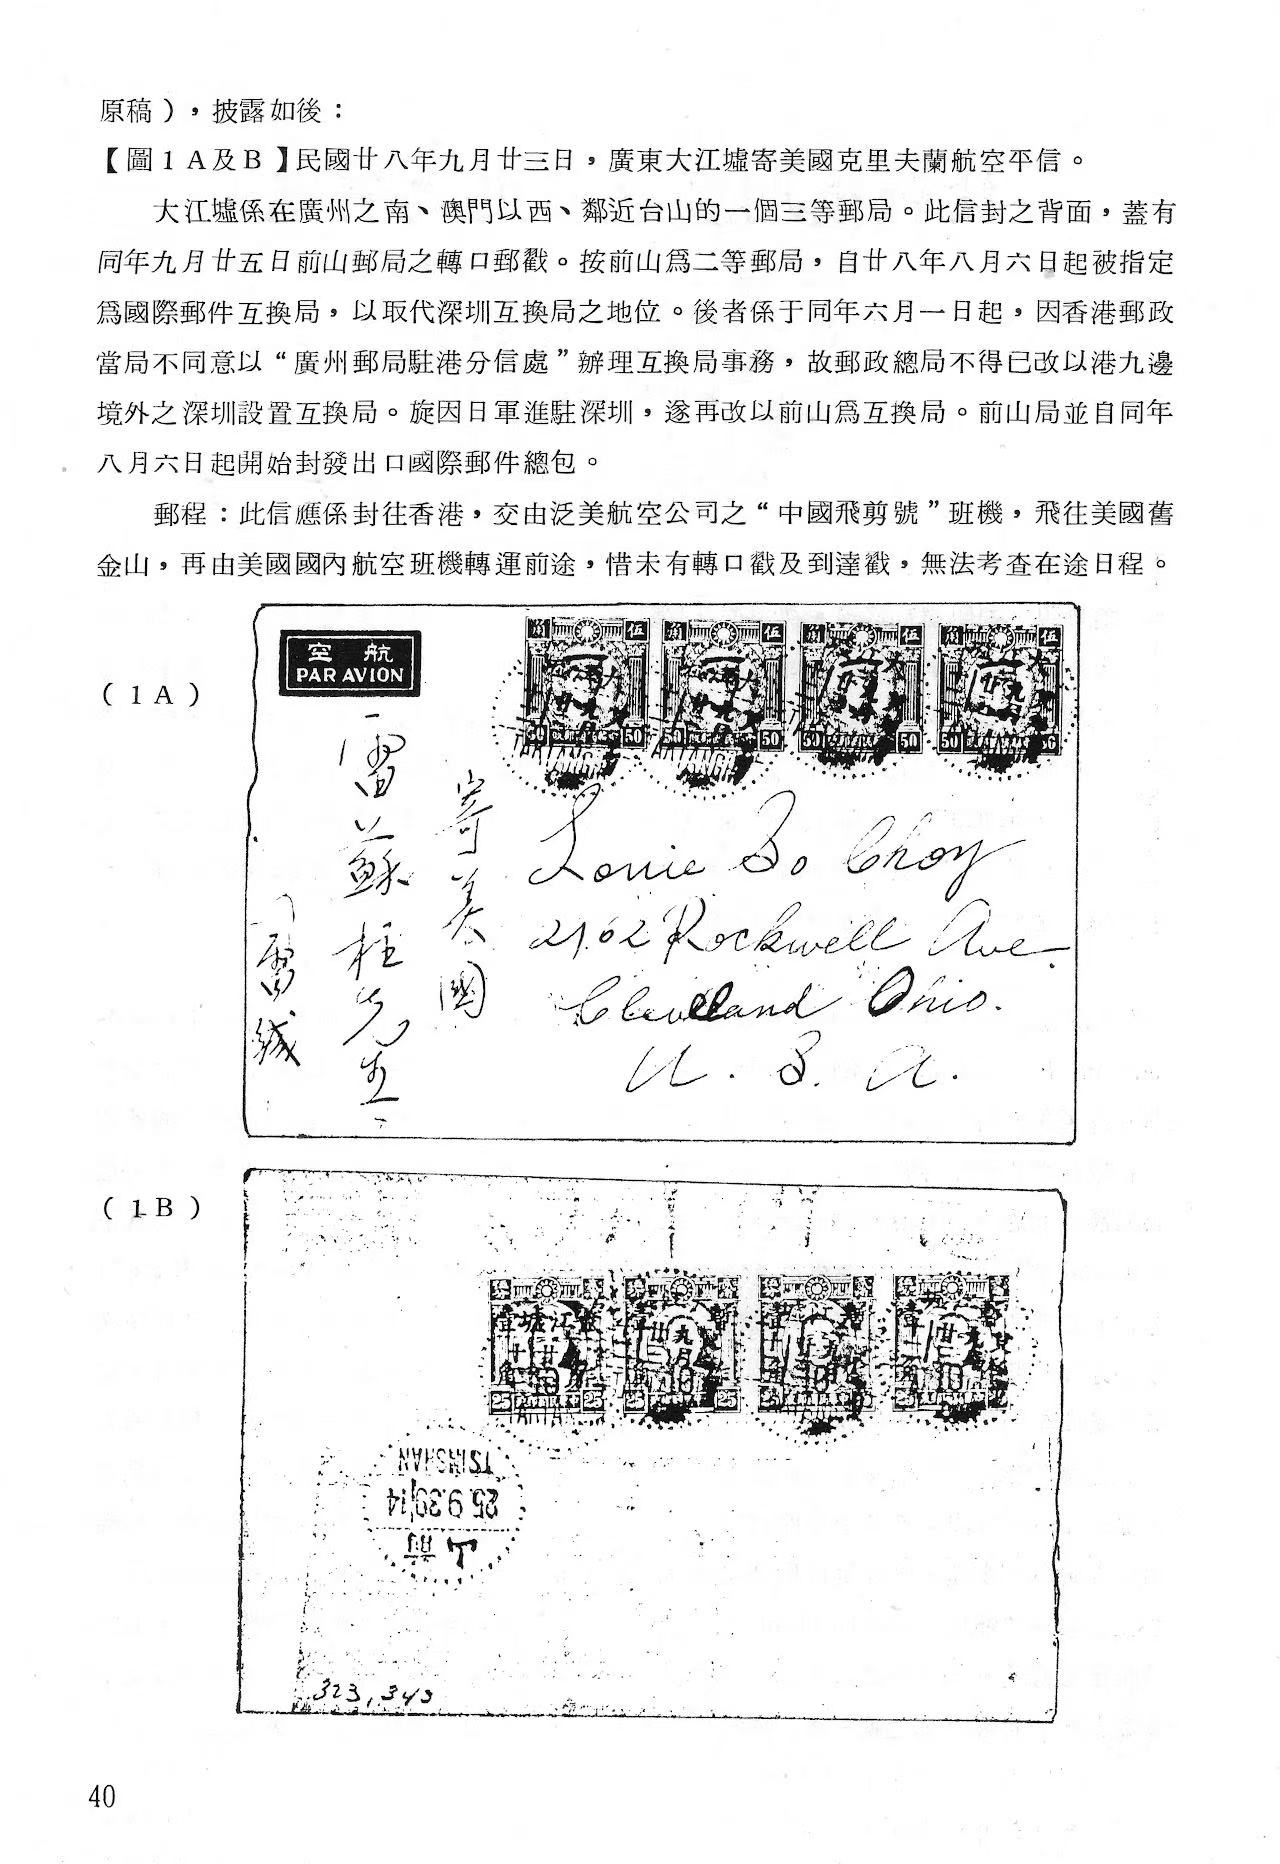 原稿），披露如後：
【圖1A及B】民國廿八年九月廿三日，廣東大江墟寄美國克里夫蘭航空平信。
大江墟係在廣州之南、澳門以西、鄰近台山的一個三等郵局。此信封之背面，蓋有
同年九月廿五日前山郵局之轉口郵戳。按前山爲二等郵局，自廿八年八月六日起被指定
爲國際郵件互換局，以取代深圳互換局之地位。後者係于同年六月一日起，因香港郵政
當局不同意以“廣州郵局駐港分信處”辦理互換局事務，故郵政總局不得已改以港九邊
境外之深圳設置互換局。旋因日軍進駐深圳，遂再改以前山爲互換局。前山局並自同年
八月六日起開始封發出口國際郵件總包。
郵程：此信應係封往香港，交由泛美航空公司之“中國飛剪號”班機，飛往美國舊
金山，再由美國國內航空班機轉運前途，惜未有轉口戳及到達戳，無法考查在途日程。
（1A）
空航
PAR AVION
角 伍 角 伍 角 伍 角 伍
50 50 50 50 50 50 50
寄美國
雷蘇柱先生
雷緘
Louie So Choy
2102 Rockwell Ave.
Cleveland Ohio.
U. S. A.
（1B）
25 25 25 25 25 25
TSINSHAN
25.9.39 14
前山
323,343
40